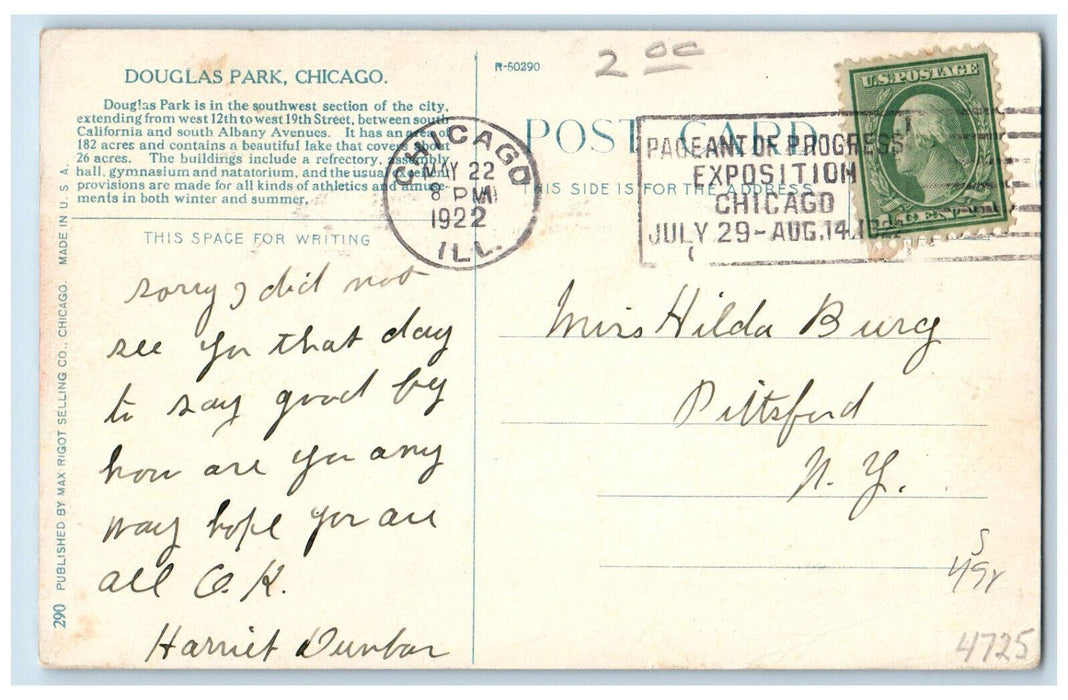 DOUGLAS PARK, CHICAGO.
Douglas Park is in the southwest section of the city,
extending from west 12th to west 19th Street, between south
California and south Albany Avenues. It has an area of
182 acres and contains a beautiful lake that covers about
26 acres. The buildings include a refrectory, assembly
hall, gymnasium and natatorium, and the usual excellent
provisions are made for all kinds of athletics and amuse-
ments in both winter and summer.
THIS SPACE FOR WRITING
sorry I did not
see you that day
to say good by
how are you any
way hope you are
all O.K.
Harriet Dunbar
290 PUBLISHED BY MAX RIGOT SELLING CO., CHICAGO. MADE IN U. S. A.
R-50290
2 00
POST CARD
THIS SIDE IS FOR THE ADDRESS
CHICAGO
MAY 22
8 PM
1922
ILL.
PAGEANT OF PROGRESS
EXPOSITION
CHICAGO
JULY 29-AUG.14.
U.S. POSTAGE
1 CENT 1
Miss Hilda Burg
Pittsford
N. Y.
4725